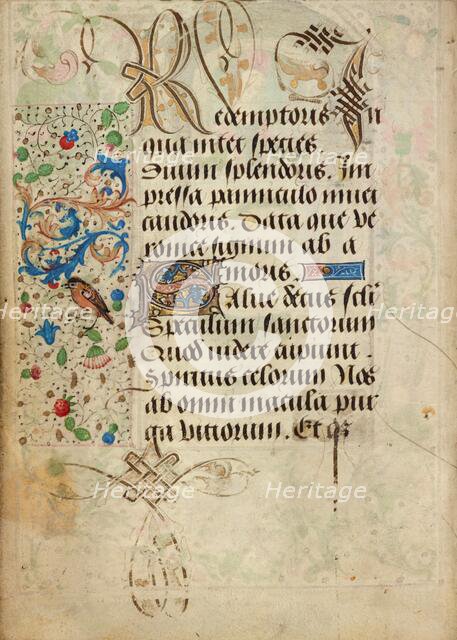 Redemptoris In
qua nitet species.
Diuini splendoris. Im
pressa panniculo niuei
candoris. Data que ve
ronice signum ob a
moris.
Salue decus scli
Speculum sanctorum
Quod uidere cupiunt.
Spiritus celorum Nos
ab omni macula pur
ga vitiorum. Et
Heritage Heritage
Heritage Heritage
Heritage Heritage